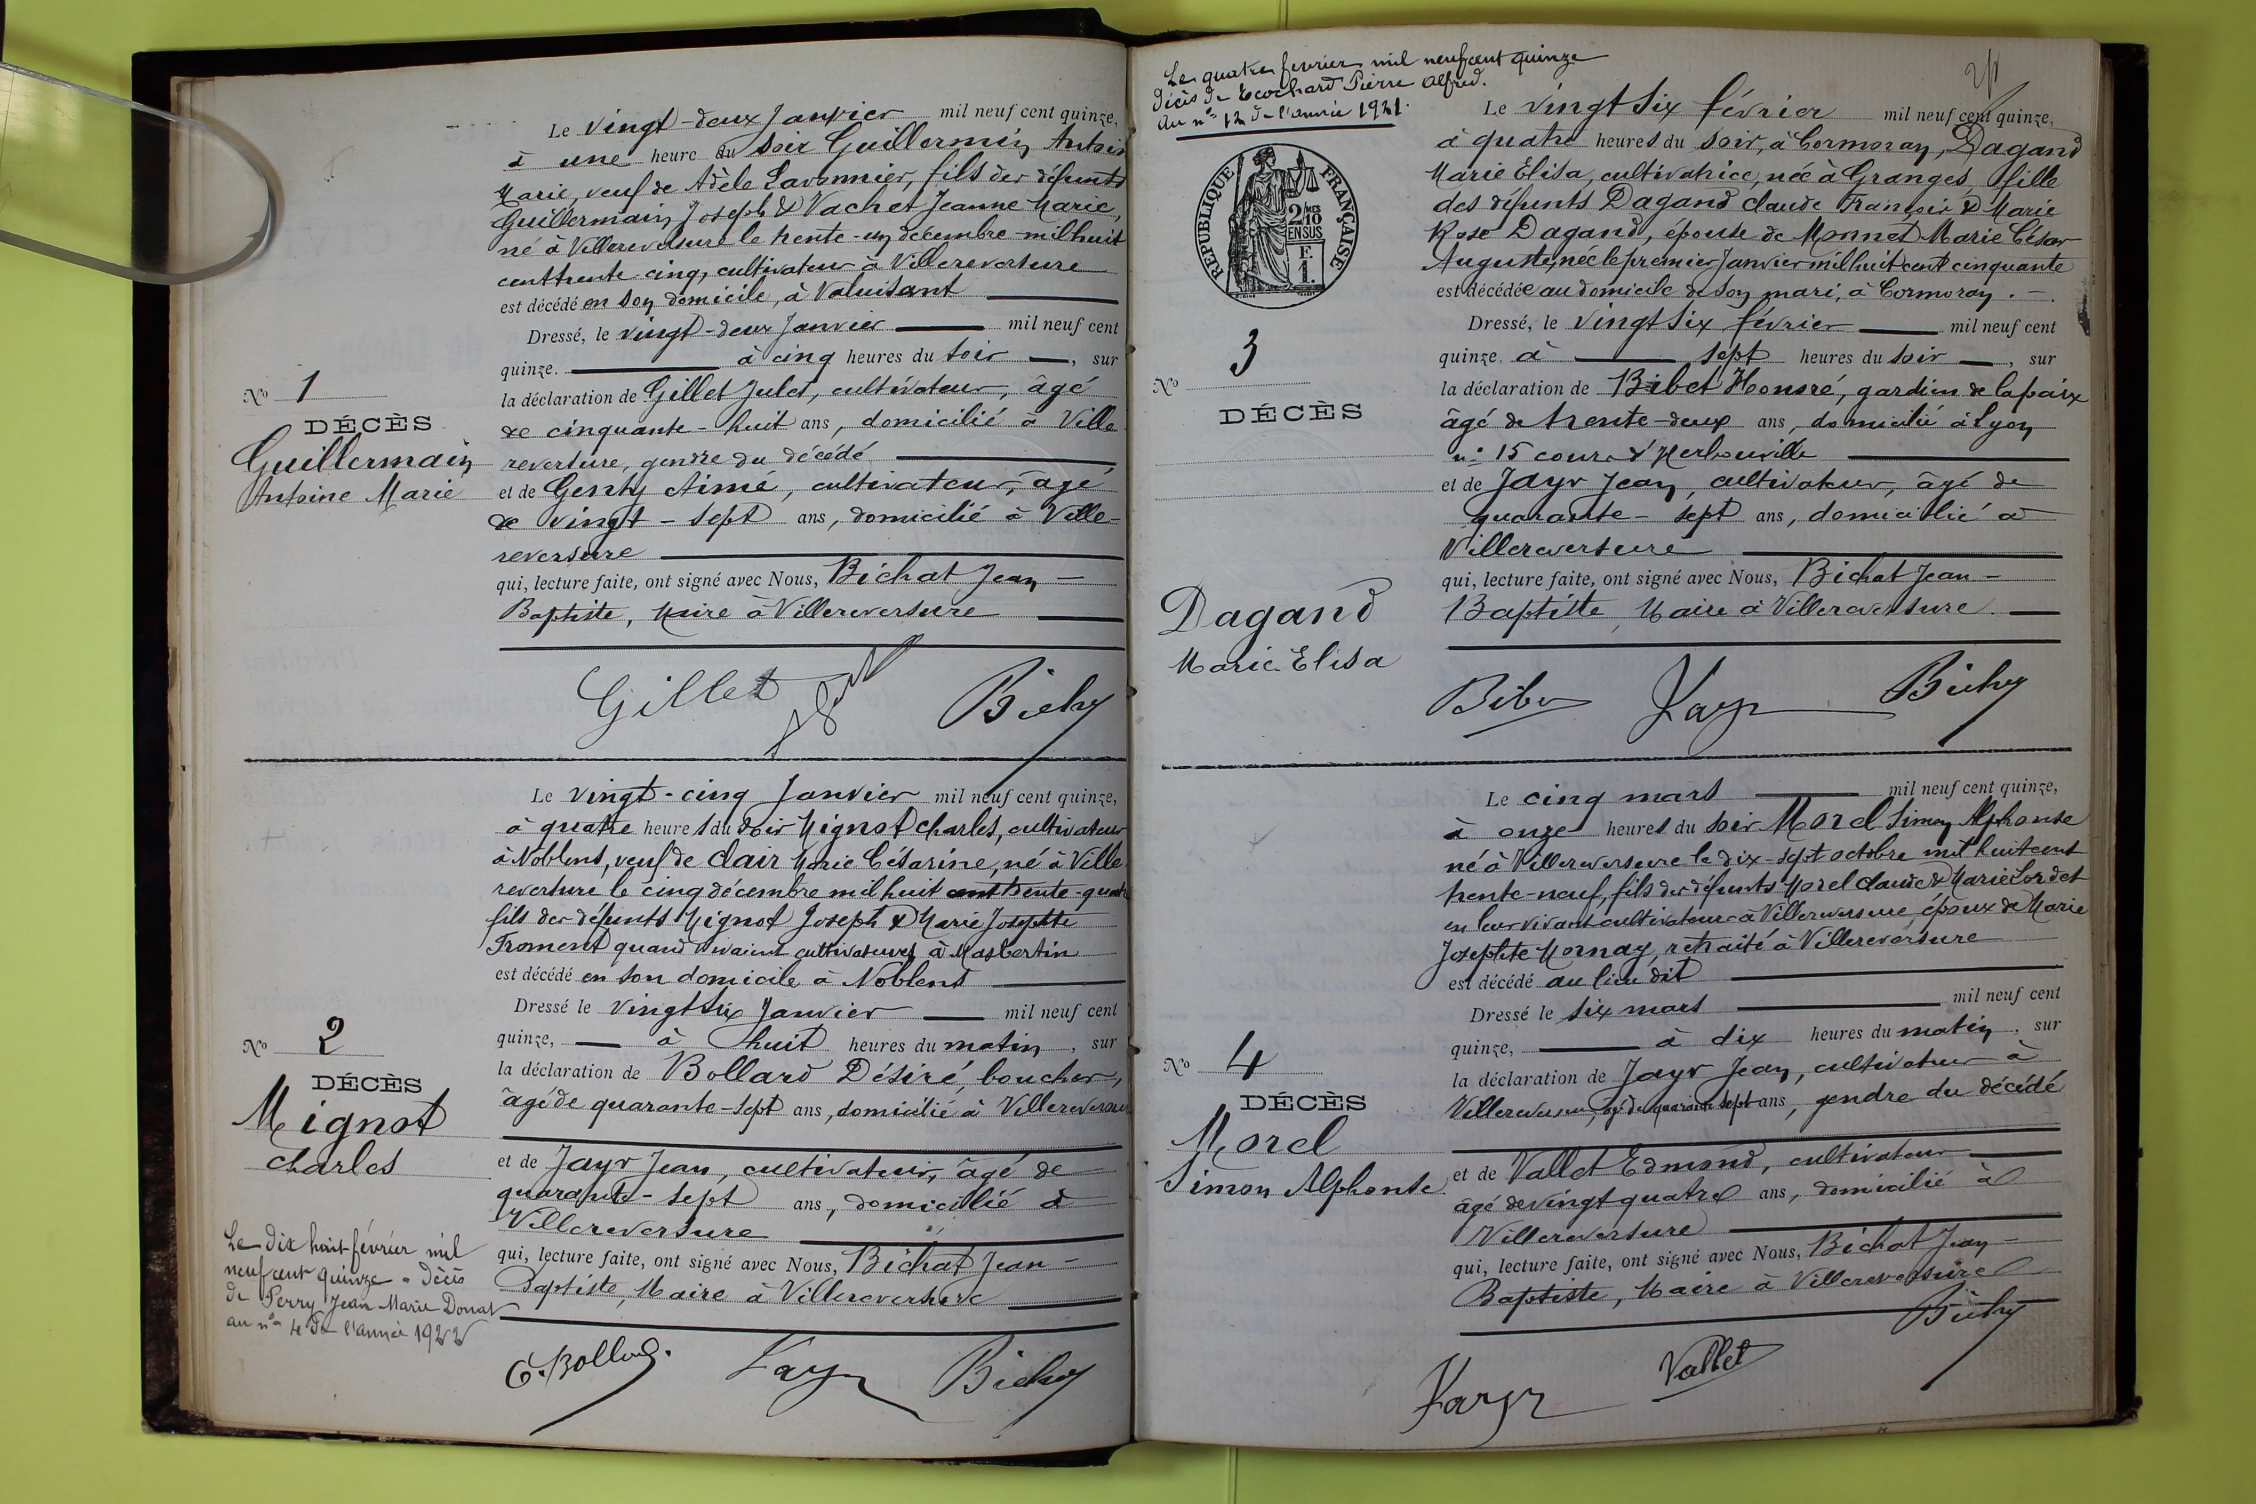 Le vingt-deux Janvier mil neuf cent quinze,
à une heure du soir Guillermin Antoine
Marie, veuf de Adèle Lavonnier, fils des défunts
Guillermain Joseph & Vachet Jeanne Marie,
né à Villereversure le trente-un décembre mil huit
cent trente cinq, cultivateur à Villereversure
est décédé en son domicile, à Valuisant
Dressé, le vingt-deux Janvier mil neuf cent
quinze. à cinq heures du soir, sur
la déclaration de Gillet Jules, cultivateur, âgé
de cinquante-huit ans, domicilié à Ville
reversure, gendre du décédé
et de Genty Aimé, cultivateur, âgé
de vingt-sept ans, domicilié à Ville-
reversure
qui, lecture faite, ont signé avec Nous, Bichat Jean-
Baptiste, Maire à Villereversure
No 1
DÉCÈS
Guillermain
Antoine Marie
Gillet
Le vingt-cinq Janvier mil neuf cent quinze,
à quatre heures du soir Mignot Charles, cultivateur
à Noblens, veuf de Clair Marie Césarine, né à Ville
reversure le cinq décembre mil huit cent trente-quatre
fils des défunts Mignot Joseph & Marie Josephte
Froment quand vivaient cultivateurs à Masbertin
est décédé en son domicile à Noblens
Dressé le vingt six Janvier mil neuf cent
quinze, à huit heures du matin, sur
la déclaration de Bollard Désiré, boucher,
âgé de quarante-sept ans, domicilié à Villereversure
et de Jayr Jean, cultivateur, âgé de
quarante-sept ans, domicilié à
Villereversure
qui, lecture faite, ont signé avec Nous, Bichat Jean-
Baptiste, Maire à Villereversure
No 2
DÉCÈS
Mignot
Charles
Le dix huit février mil
neuf cent quinze - décès
de Perry Jean Marie Donat
au n° 4 de l'année 1922
Jayr
Le quatre février mil neuf cent quinze
décès de Pierre Alfred.
au n° 12 de l'année 1921.
RÉPUBLIQUE FRANÇAISE
2/10
EN SUS
F.
1.
Le vingt six février mil neuf cent quinze,
à quatre heures du soir, à Cormoray, Dagand
Marie Elisa, cultivatrice, née à Granges, fille
des défunts Dagand Claude François & Marie
Rose Dagand, épouse de Monnet Marie César
Auguste, née le premier Janvier mil huit cent cinquante
est décédée au domicile de son mari, à Cormoray.
Dressé, le vingt six février mil neuf cent
quinze. à sept heures du soir, sur
la déclaration de Bibet Honoré, gardien de la paix
âgé de trente-deux ans, domicilié à Lyon
n° 15 cours d'Herbouville
et de Jayr Jean, cultivateur, âgé de
quarante-sept ans, domicilié à
Villereversure
qui, lecture faite, ont signé avec Nous, Bichat Jean-
Baptiste, Maire à Villereversure.
No 3
DÉCÈS
Dagand
Marie Elisa
Jayr
Le cinq mars mil neuf cent quinze,
à onze heures du soir Morel Simon Alphonse
né à Villereversure le dix-sept octobre mil huit cent
trente-neuf, fils des défunts Morel Claude & Marie Lordet
en leur vivant cultivateurs à Villereversure, époux de Marie
Josephte Mornay, retraité à Villereversure
est décédé au lieu dit
Dressé le six mars mil neuf cent
quinze, à dix heures du matin, sur
la déclaration de Jayr Jean, cultivateur à
Villereversure, âgé de quarante sept ans, gendre du décédé
et de Vallet Edmond, cultivateur
âgé de vingt quatre ans, domicilié à
Villereversure
qui, lecture faite, ont signé avec Nous, Bichat Jean-
Baptiste, Maire à Villereversure
No 4
DÉCÈS
Morel
Simon Alphonse
Jayr
Vallet